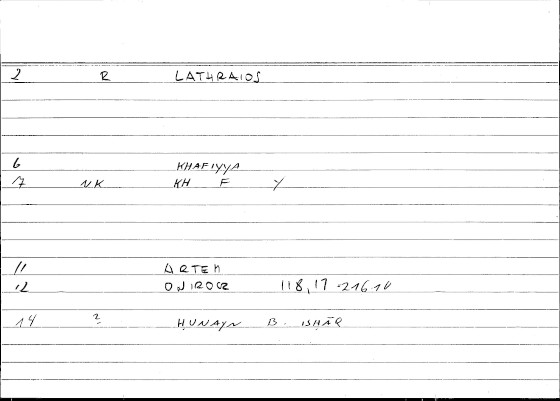 2 R LATHRAIOS
6 KHAFIYYA
17 NK KH F Y
11 ARTEM
12 ONIROCR 118,17 - 216 10
14 2 ḤUNAYN B. ISḤĀQ